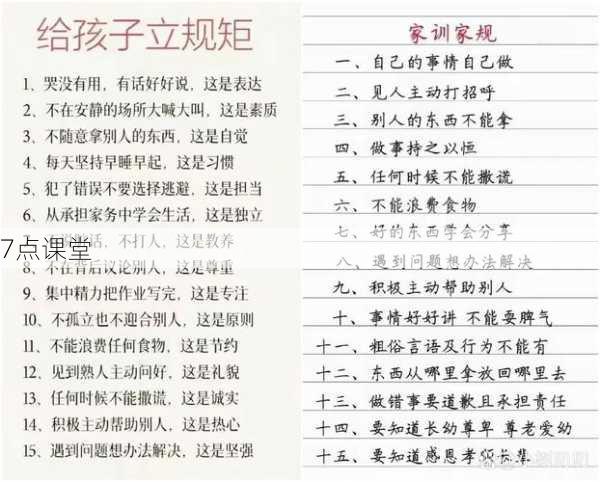 给孩子立规矩
1、哭没有用，有话好好说，这是表达
2、不在安静的场所大喊大叫，这是素质
3、不随意拿别人的东西，这是自觉
4、每天坚持早睡早起，这是习惯
5、犯了错误不要选择逃避，这是担当
6、从承担家务中学会生活，这是独立
话，不打人，这是教养
7点课堂
8、不在背后议论别人，这是尊重
9、集中精力把作业写完，这是专注
10、不孤立也不迎合别人，这是原则
11、不能浪费任何食物，这是节约
12、见到熟人主动问好，这是礼貌
13、任何时候不能撒谎，这是诚实
14、积极主动帮助别人，这是热心
15、遇到问题想办法解决，这是坚强
家训家规
一、自己的事情自己做
二、见人主动打招呼
三、别人的东西不能拿
四、做事持之以恒
五、任何时候不能撒谎
六、不能浪费食物
七、好的东西学会分享
八、遇到问题想办法解决
九、积极主动帮助别人
十、事情好好讲 不能耍脾气
十一、粗俗言语及行为不能有
十二、东西从哪里拿放回哪里去
十三、做错事要道歉且承担责任
十四、要知道长幼尊卑 尊老爱幼
十五、要知道感恩孝顺长辈